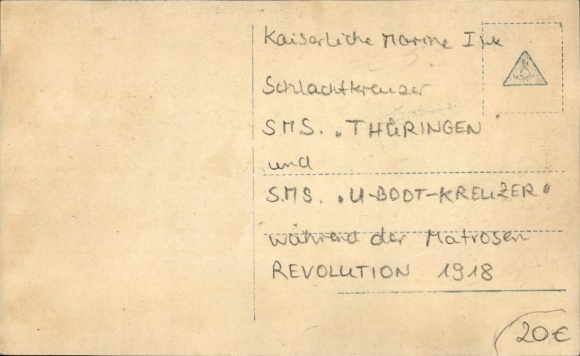 Kaiserliche Marine I WK
Schlachtkreuzer
SMS. „THÜRINGEN"
und
SMS. „U-BOOT-KREUZER"
während der Matrosen
REVOLUTION 1918
20€